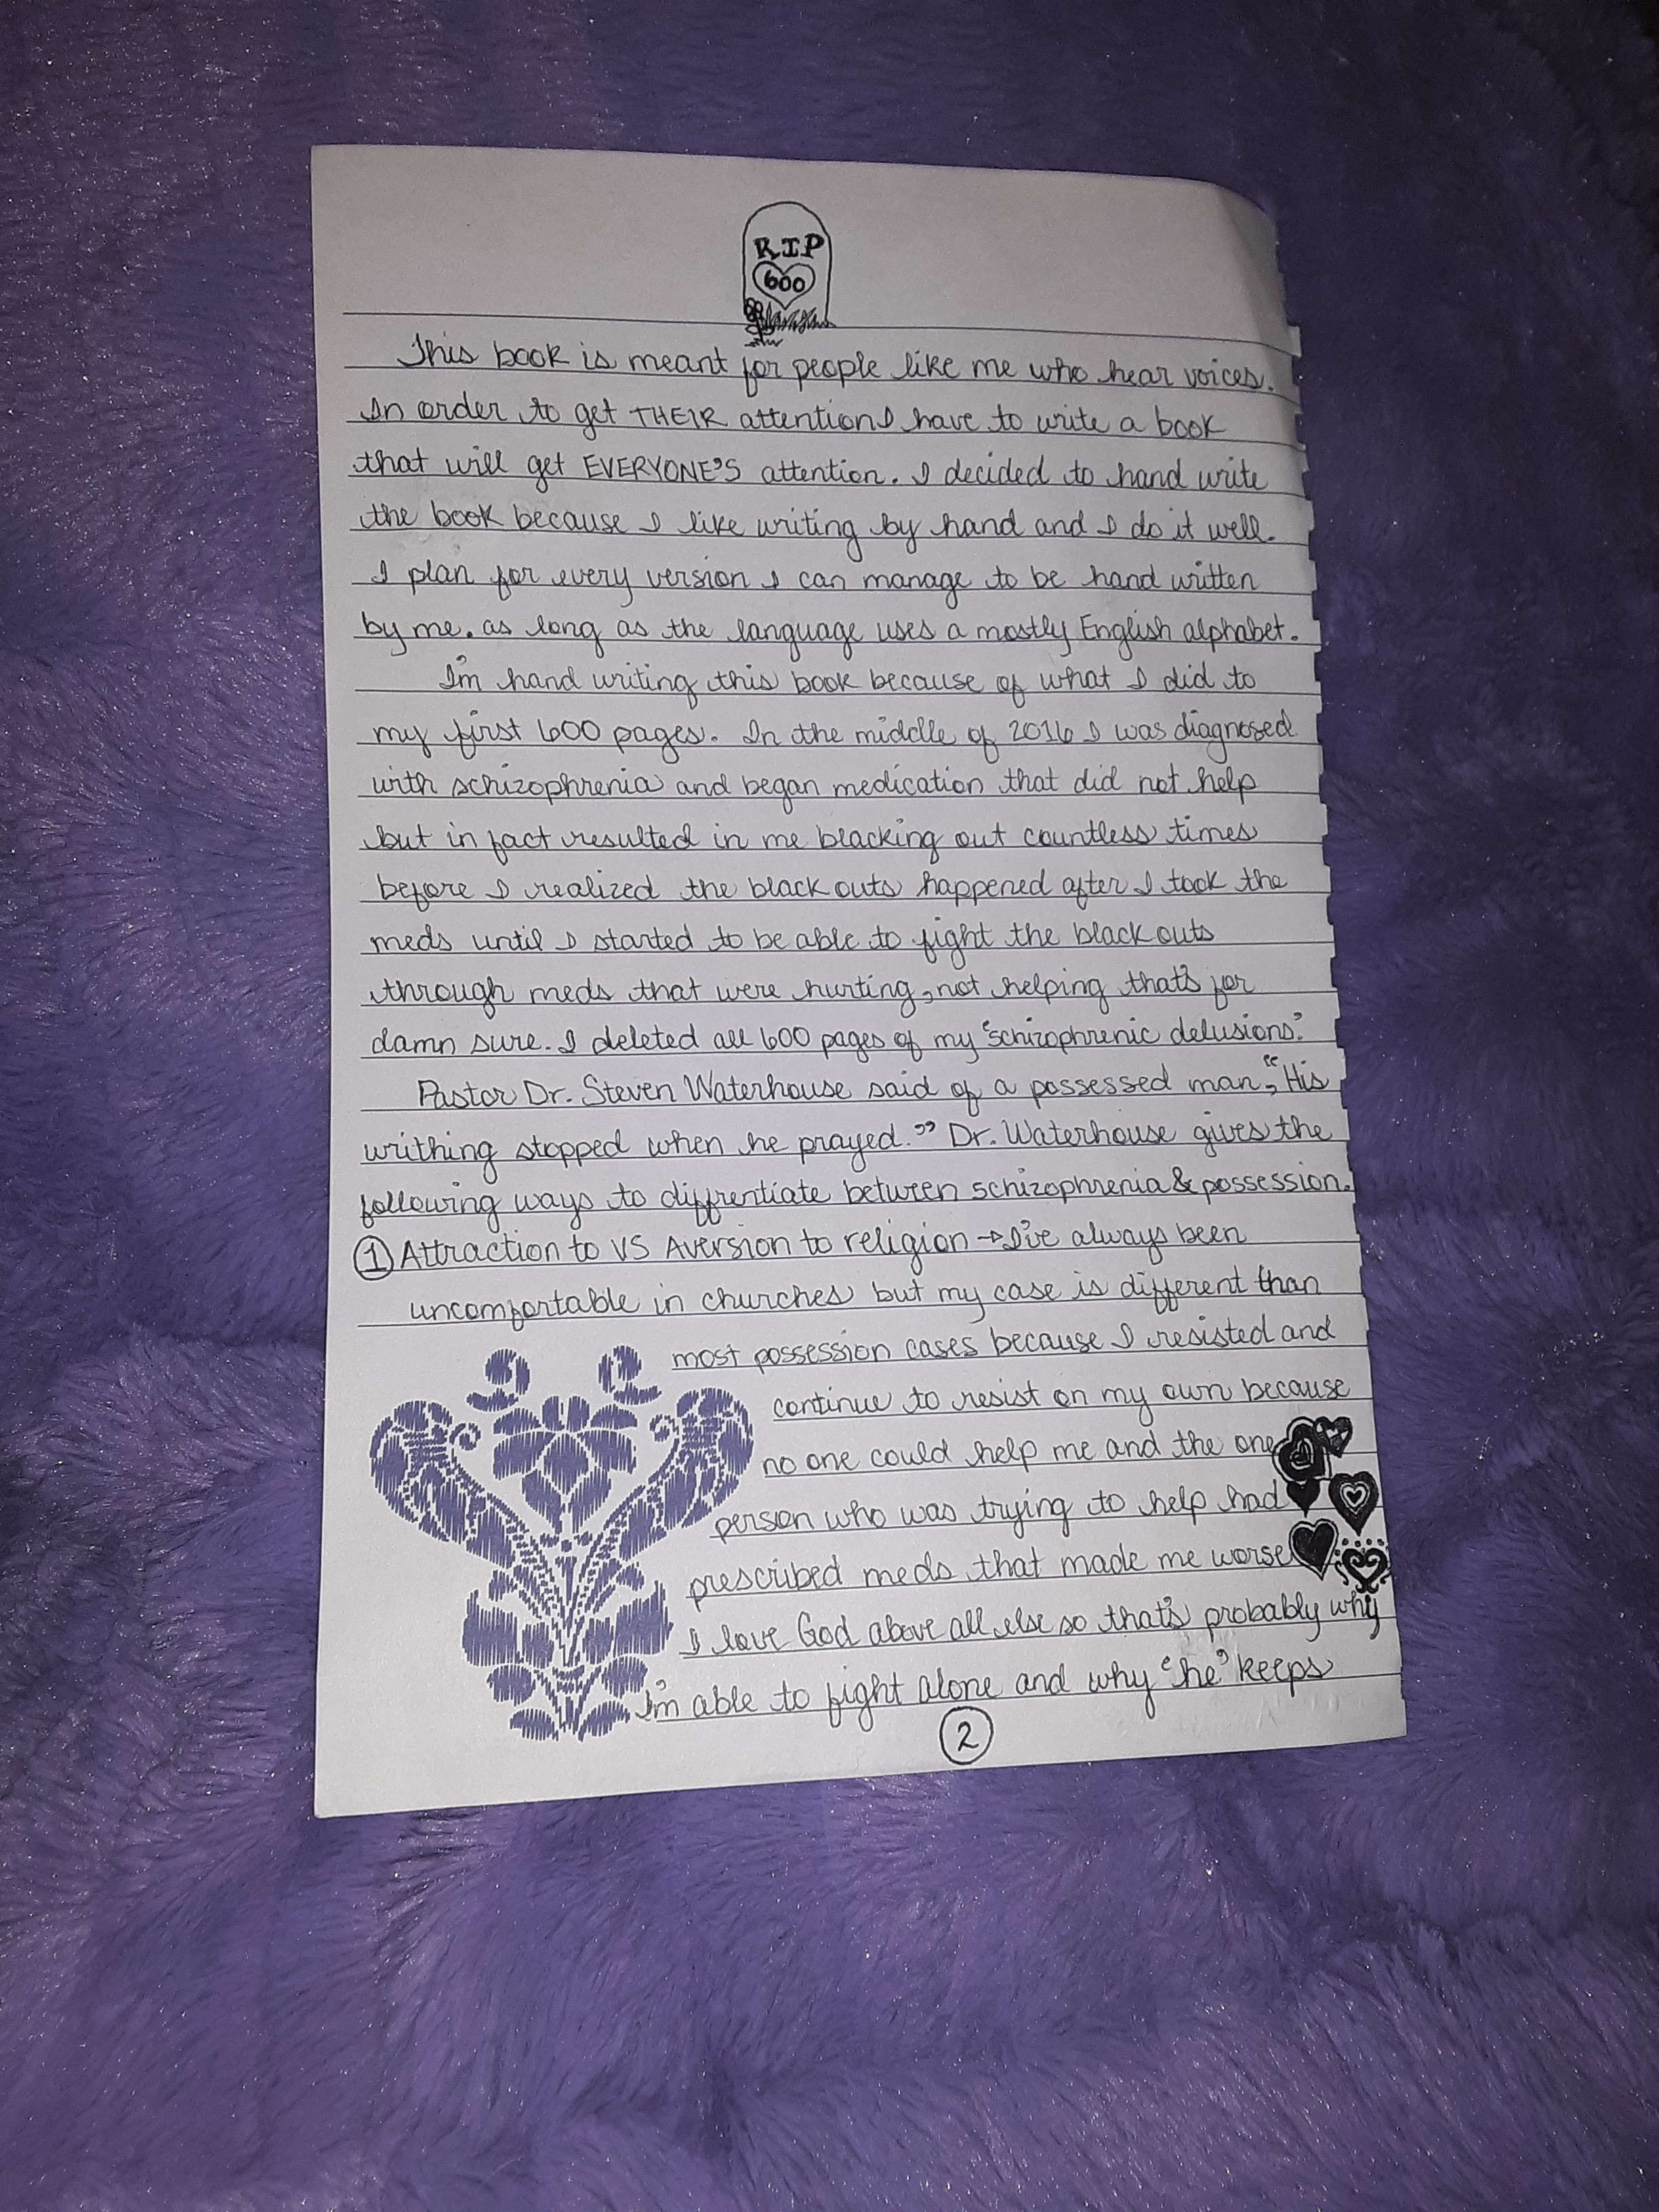 RIP
600
This book is meant for people like me who hear voices.
In order to get THEIR attention I have to write a book
that will get EVERYONE'S attention. I decided to hand write
the book because I like writing by hand and I do it well.
I plan for every version I can manage to be hand written
by me. as long as the language uses a mostly English alphabet.
I'm hand writing this book because of what I did to
my first 600 pages. In the middle of 2016 I was diagnosed
with schizophrenia and began medication that did not help
but in fact resulted in me blacking out countless times
before I realized the black outs happened after I took the
meds until I started to be able to fight the black outs
through meds that were hurting, not helping that's for
damn sure. I deleted all 600 pages of my "schizophrenic delusions."
Pastor Dr. Steven Waterhouse said of a possessed man, "His
writhing stopped when he prayed." Dr. Waterhouse gives the
following ways to diffrentiate between schizophrenia & possession.
① Attraction to VS Aversion to religion → I've always been
uncomfortable in churches but my case is different than
most possession cases because I resisted and
continue to resist on my own because
no one could help me and the one
person who was trying to help had
prescribed meds that made me worse
I love God above all else so that's probably why
I'm able to fight alone and why 'he' keeps
2